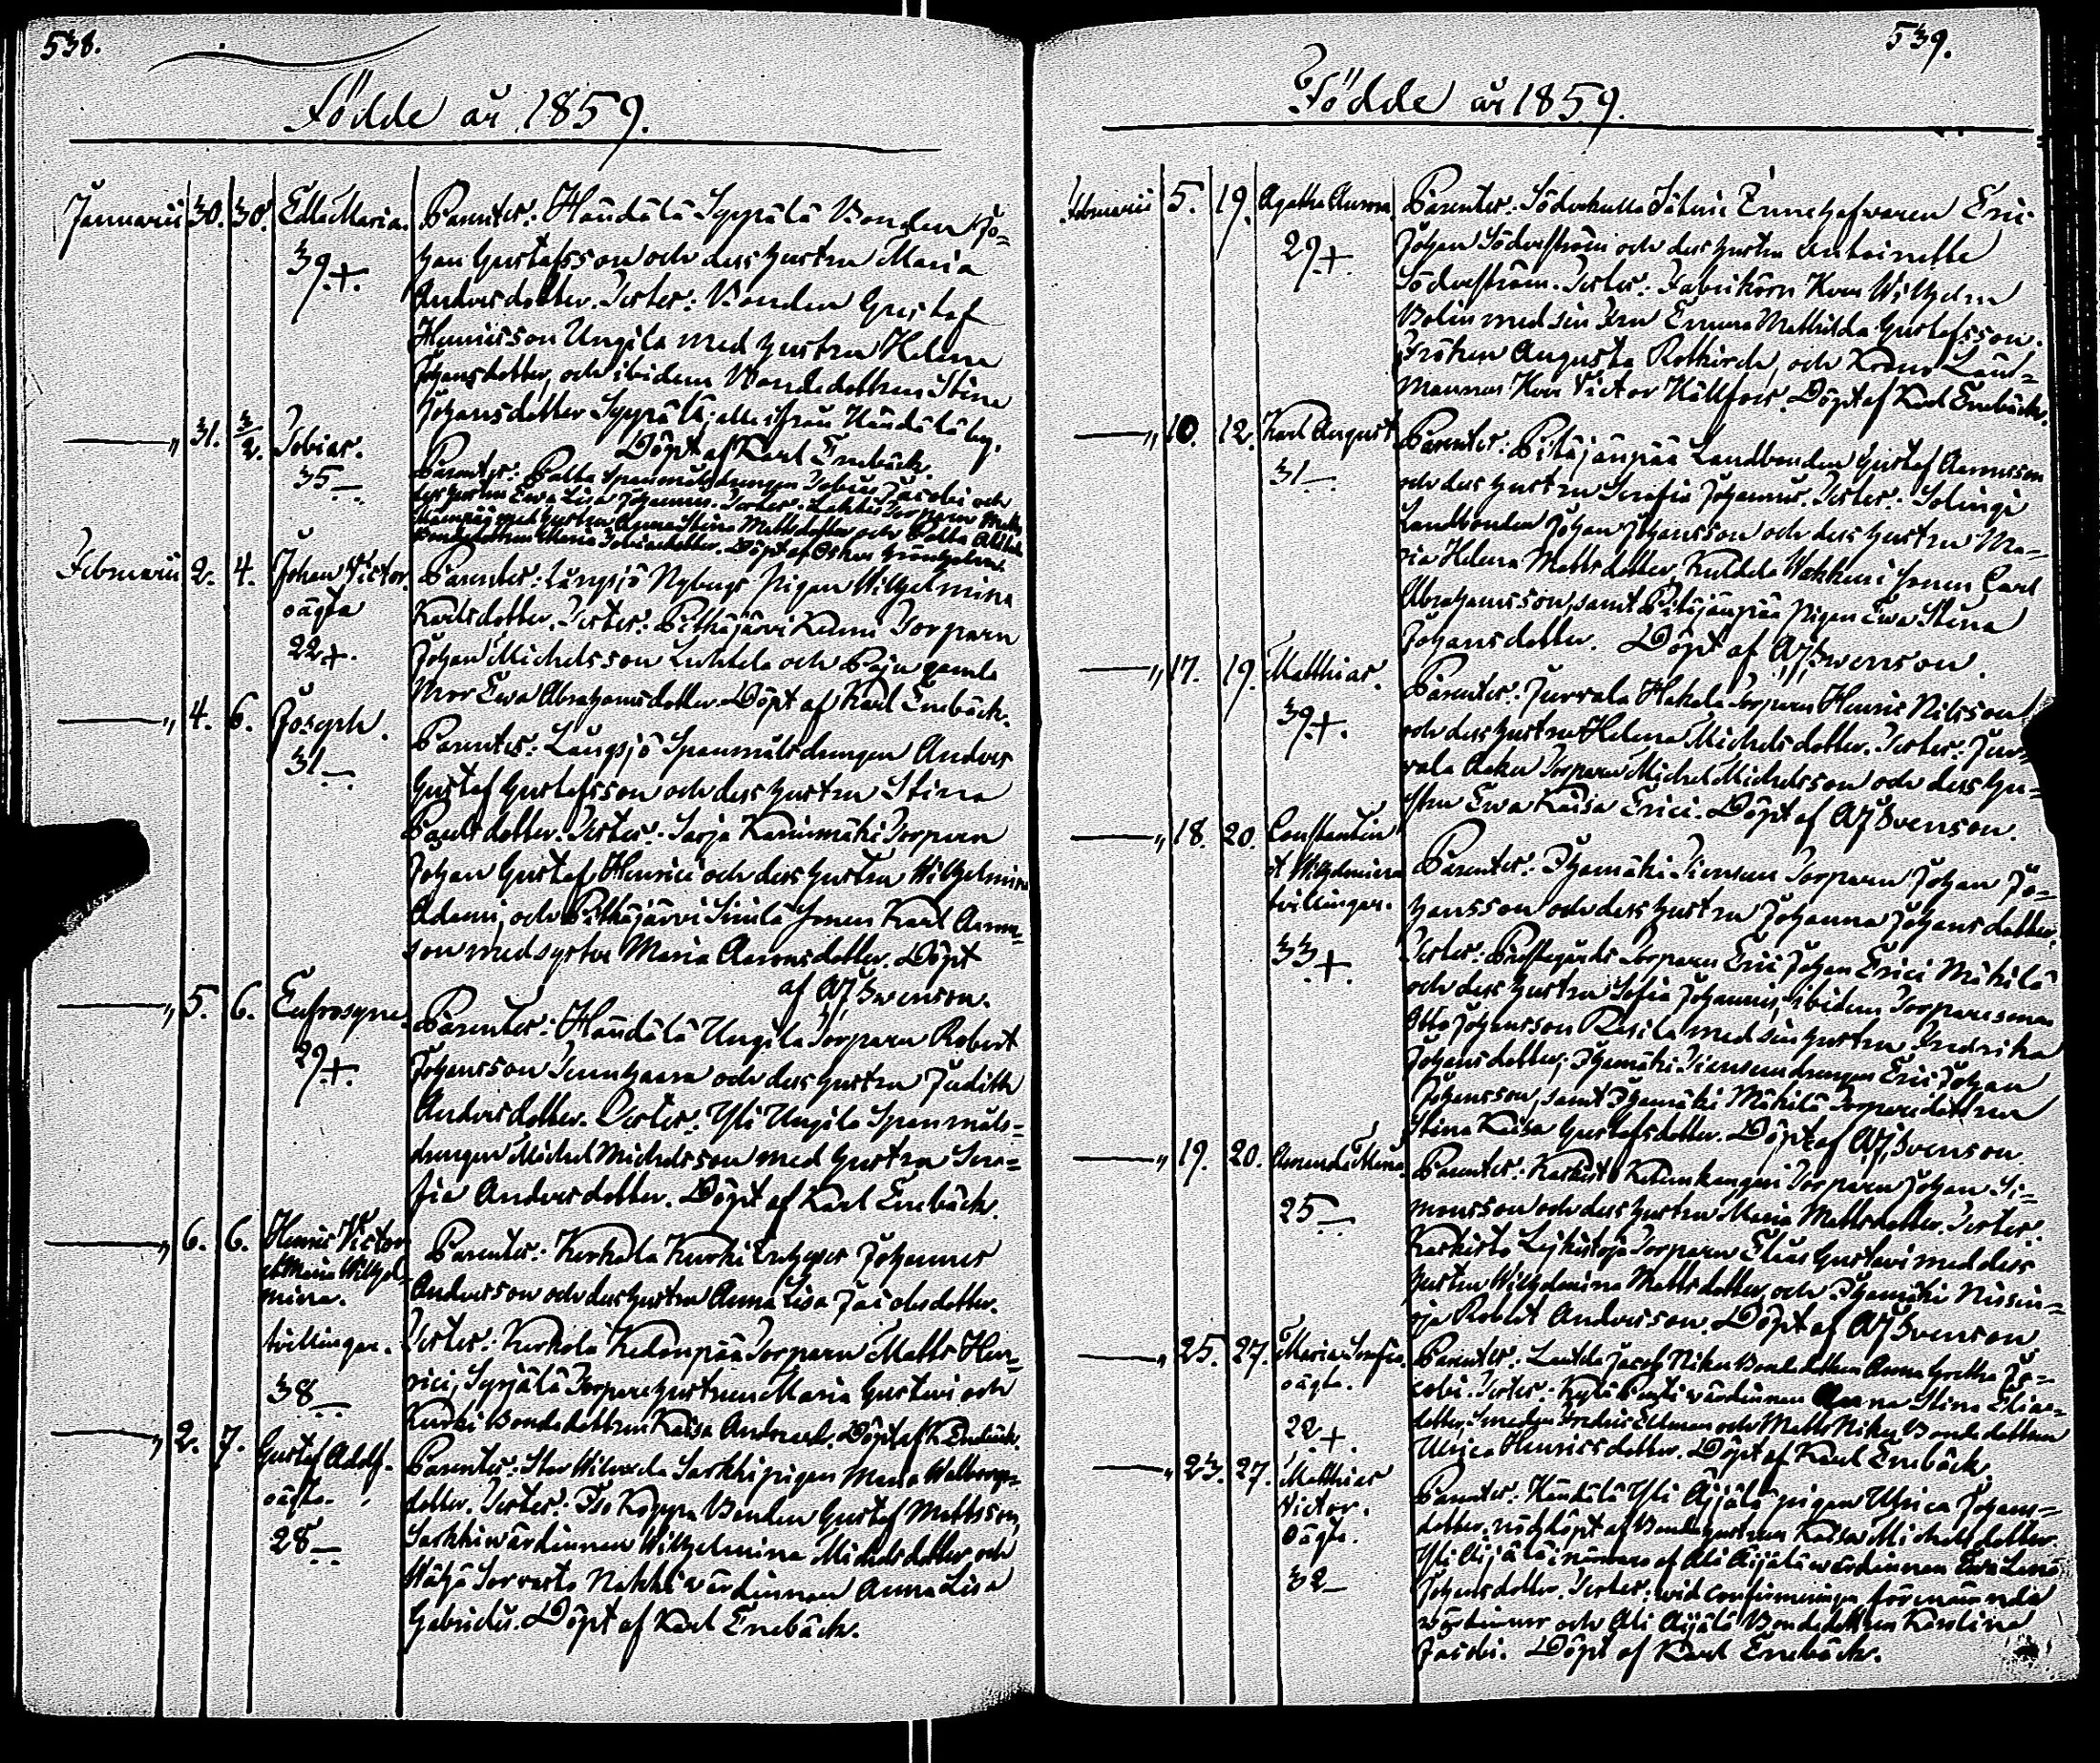 538.
Födde år 1859.
Januarii 30. 30. Edla Maria. Parenter: Haudälä Syppälä Bonden Jo=
39.+. han Gustafsson och dess hustru Maria
Andersdotter. Tester: Bonden Gustaf
Henricsson Ungila med hustru Helena
Johansdotter, och ibidem Bondedottren Stina
Johansdotter Syppälä, alle ifrån Haudälä by.
Döpt af Karl Enebäck.
—„ 31. 3/2. Tobias. Parenter: Palta Spanmålsdrengen Tobias Jacobi och
35— dess hustru Ewa Lisa Johannis. Tester: Torparn Matts
med hustru Anna Stina Mattsdotter och Palta
Bondedottren Maria Tobiaedotter. Döpt af Oskar
Februarii 2. 4. Johan Victor. Parenter: Långsjö Nybergs pigan Wilhelmina
oägta Karlsdotter. Tester: Pitkäjärvi Torparn
22+. Johan Michelsson och Paju gamla
Mor Ewa Abrahamsdotter. Döpt af Karl Enebäck.
—„ 4. 6. Joseph. Parenter: Långsjö Spanmålsdrengen Anders
31— Gustaf Gustafsson och dess hustru Stina
Paulsdotter. Tester: Sarja Torparn
Johan Gustaf Henrici och dess hustru Wilhelmina
Adami, och Pitkäjärvi Simila Sonen Karl Aaron=
son med syster Maria Aaronsdotter. Döpt
af AJSwenson.
—„ 5. 6. Eufrosyne. Parenter: Haudälä Ungila Torparn Robert
29.+. Johansson och dess hustru Judith
Andersdotter. Tester: Yli Ungila Spanmåls=
drengen Michel Michelsson med hustru Sera=
fia Andersdotter. Döpt af Karl Enebäck.
—„ 6. 6. Henric Victor Parenter: Kerkola Kurki Johannes
et Maria Wilhel= Andersson och dess hustru Anna Lisa Jacobsdotter.
mina.
tvillingar. Tester: Kerkola Kedonpää Torparn Matts Hen=
38— rici, Syrjälä Torparehustrun Maria Gustavi och
Kurki Bondedottren Kaisa Andersd. Döpt af K. Enebäck.
—„ 2. 7. Gustaf Adolf. Parenter: Stor Wilunda Sarkki pigan Maria Walborgs=
oägta. dotter. Tester: Iso Koppra Bonden Gustaf Mattsson,
28— Sarkki wärdinnan Wilhelmina Michelsdotter och
Wähä Sorvasto Nahki wärdinnan Anna Lisa
Gabrielis. Döpt af Karl Enebäck.
539.
Födde år 1859.
Februarii 5. 19. Agatha Aurora. Parenter: Söderkulla Innehafwaren Eric
29.+. Johan Söderström och dess hustru Antoinette
Söderström. Tester: Fabrikörn Herr Wilhelm
Bolin med sin Fru Emma Mathilda Gustafsson.
Fröken Augusta Rotkirch, och Krono Läns=
mannen Herr Victor Hällfors. Döpt af Karl Enebäck.
—„ 10. 12. Karl August Parenter: Pitäjänpää Landbonden Gustaf Aaronsson
31— och dess hustru Serafia Johannis. Tester: Solinge
Landbonden Johan Johansson och dess hustru Ma=
ria Helena Mattsdotter, Kuldela Wakkuri Sonen Carl
Abrahamsson, samt Pitäjänpää Pigan Ewa Stina
Johansdotter. Döpt af AJSwenson.
—„ 17. 19. Matthias. Parenter: Jursala Hakala Torparn Henric Nilsson
39.+. och dess hustru Helena Michelsdotter. Tester: Jur=
sala Torparn Michel Michelsson och dess hu=
stru Ewa Kaisa Erici. Döpt af AJSwenson.
—„ 18. 20. Constantin Parenter: Ihamäki Torparn Johan Jo=
et Wilhelmina hansson och dess hustru Johanna Johansdotter.
tvillingar. Tester: Prestegårds Torparn Eric Johan Erici Mäkilä
33+ och dess hustru Sofia Johannis, ibidem Torparesonen
Otto Johansson Rasila med sin hustru Fredrika
Johansdotter; Ihamäki drengen Eric Johan
Johansson, samt Ihamäki Mäkilä Torparedottren
Stina Kaisa Gustafsdotter. Döpt af AJSwenson.
—„ 19. 20. Amanda Parenter: Karkisto Torparn Johan Si=
25— monsson och dess hustru Maria Mattsdotter. Tester:
Karkisto Torparn Elias Gustavi med dess
hustru Wilhelmina Mattsdotter, och Ihamäki
Robert Andersson. Döpt af AJSwenson.
—„ 25. 27. Maria Serafia. Parenter: Lautela Jacob Niku Bondedottren Anna Gretha Ja=
oägta. cobi. Tester: Kylä Pentti wärdinnan Anna Stina Elias=
22+. dotter, Smeden Fredric Ekman och Matts Niku Bondedottren
Ulrica Henricsdotter. Döpt af Karl Enebäck.
—„ 23. 27. Matthias Parenter: Haudälä Yli Äijälä pigan Ulrica Johans=
Victor. dotter, nöddöpt af Bondehustrun Kaisa Michelsdotter
oägta. Yli Äijälä i närvaro af Ali Äijälä wärdinnan Ewa Lena
32— Johansdotter. Tester: wid confirmeringen förenämnda
wärdinnor och Ali Äijälä Bondedottren Karolina
Jacobi. Döpt af Karl Enebäck.